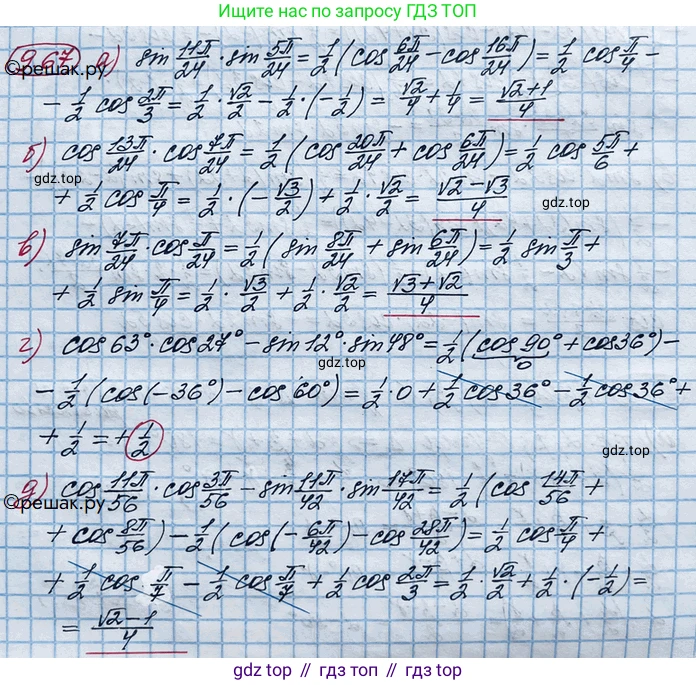 больше решений по запросу ГДЗ ТОП
9.67 а) sin 11π/24 · sin 5π/24 = 1/2 (cos 6π/24 - cos 16π/24) = 1/2 cos π/4 -
©решак.ру
- 1/2 cos 2π/3 = 1/2 · √2/2 - 1/2 · (-1/2) = √2/4 + 1/4 = √2+1/4
б) cos 13π/24 · cos 7π/24 = 1/2 (cos 20π/24 + cos 6π/24) = 1/2 cos 5π/6 +
gdz.top
+ 1/2 cos π/4 = 1/2 · (-√3/2) + 1/2 · √2/2 = √2-√3/4
gdz.top
в) sin 7π/24 · cos π/24 = 1/2 (sin 8π/24 + sin 6π/24) = 1/2 sin π/3 +
+ 1/2 sin π/4 = 1/2 · √3/2 + 1/2 · √2/2 = √3+√2/4
г) cos 63° · cos 27° - sin 12° · sin 48° = 1/2 (cos 90° + cos 36°) -
0
gdz.top
- 1/2 (cos(-36°) - cos 60°) = 1/2 · 0 + 1/2 cos 36° - 1/2 cos 36° +
+ 1/2 = + 1/2
gdz.top
д) cos 11π/56 · cos 3π/56 - sin 11π/42 · sin 17π/42 = 1/2 (cos 14π/56 +
©решак.ру
+ cos 8π/56) - 1/2 (cos(-6π/42) - cos 28π/42) = 1/2 cos π/4 +
+ 1/2 cos π/7 - 1/2 cos π/7 + 1/2 cos 2π/3 = 1/2 · √2/2 + 1/2 · (-1/2) =
= √2-1/4
gdz.top // гдз топ // gdz.top